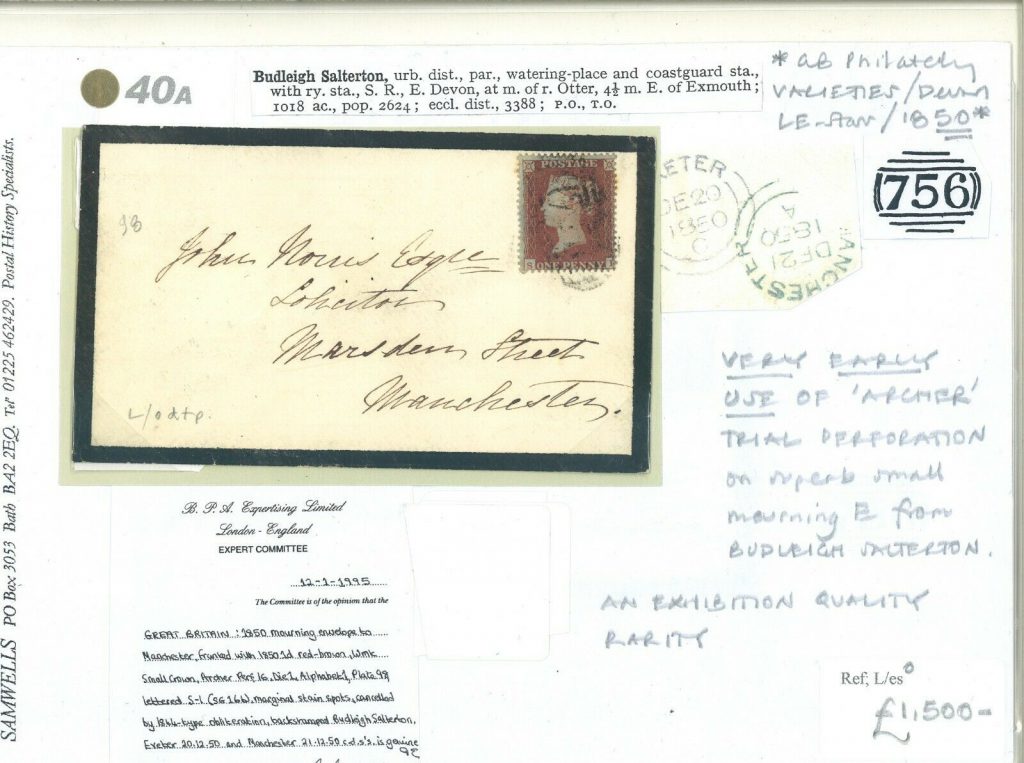 40A
Budleigh Salterton, urb. dist., par., watering-place and coastguard sta.,
with ry. sta., S. R., E. Devon, at m. of r. Otter, 4½ m. E. of Exmouth;
1018 ac., pop. 2624; eccl. dist., 3388; P.O., T.O.
* GB Philately
VARIETIES/Devon
/1850*
(756)
POSTAGE
ONE PENNY
S
XETER
DE 20
1850
C
MANCHESTER
DE 21
1850
A
John Norris Esqre
Solicitor
Marsden Street
Manchester.
VERY EARLY
USE OF 'ARCHER'
TRIAL PERFORATION
on superb small
mourning E from
BUDLEIGH SALTERTON.
AN EXHIBITION QUALITY
RARITY
B. P. A. Expertising Limited
London - England
EXPERT COMMITTEE
12-1-1995
The Committee is of the opinion that the
GREAT BRITAIN : 1850 mourning envelope to
Manchester, franked with 1850 1d red-brown, Wmk
Small Crown, Archer Perf 16, Die 1, Alphabet 1, Plate 99
lettered S-I (SG 16b), marginal stain spots, cancelled
by 1844-type obliteration, backstamped Budleigh Salterton,
Exeter 20.12.50 and Manchester 21.12.50 c.d.s's. is genuine
Ref; L/es
£1,500-
SAMWELLS PO Box 3053 Bath BA2 2EQ. Tel' 01225 462429. Postal History Specialists.